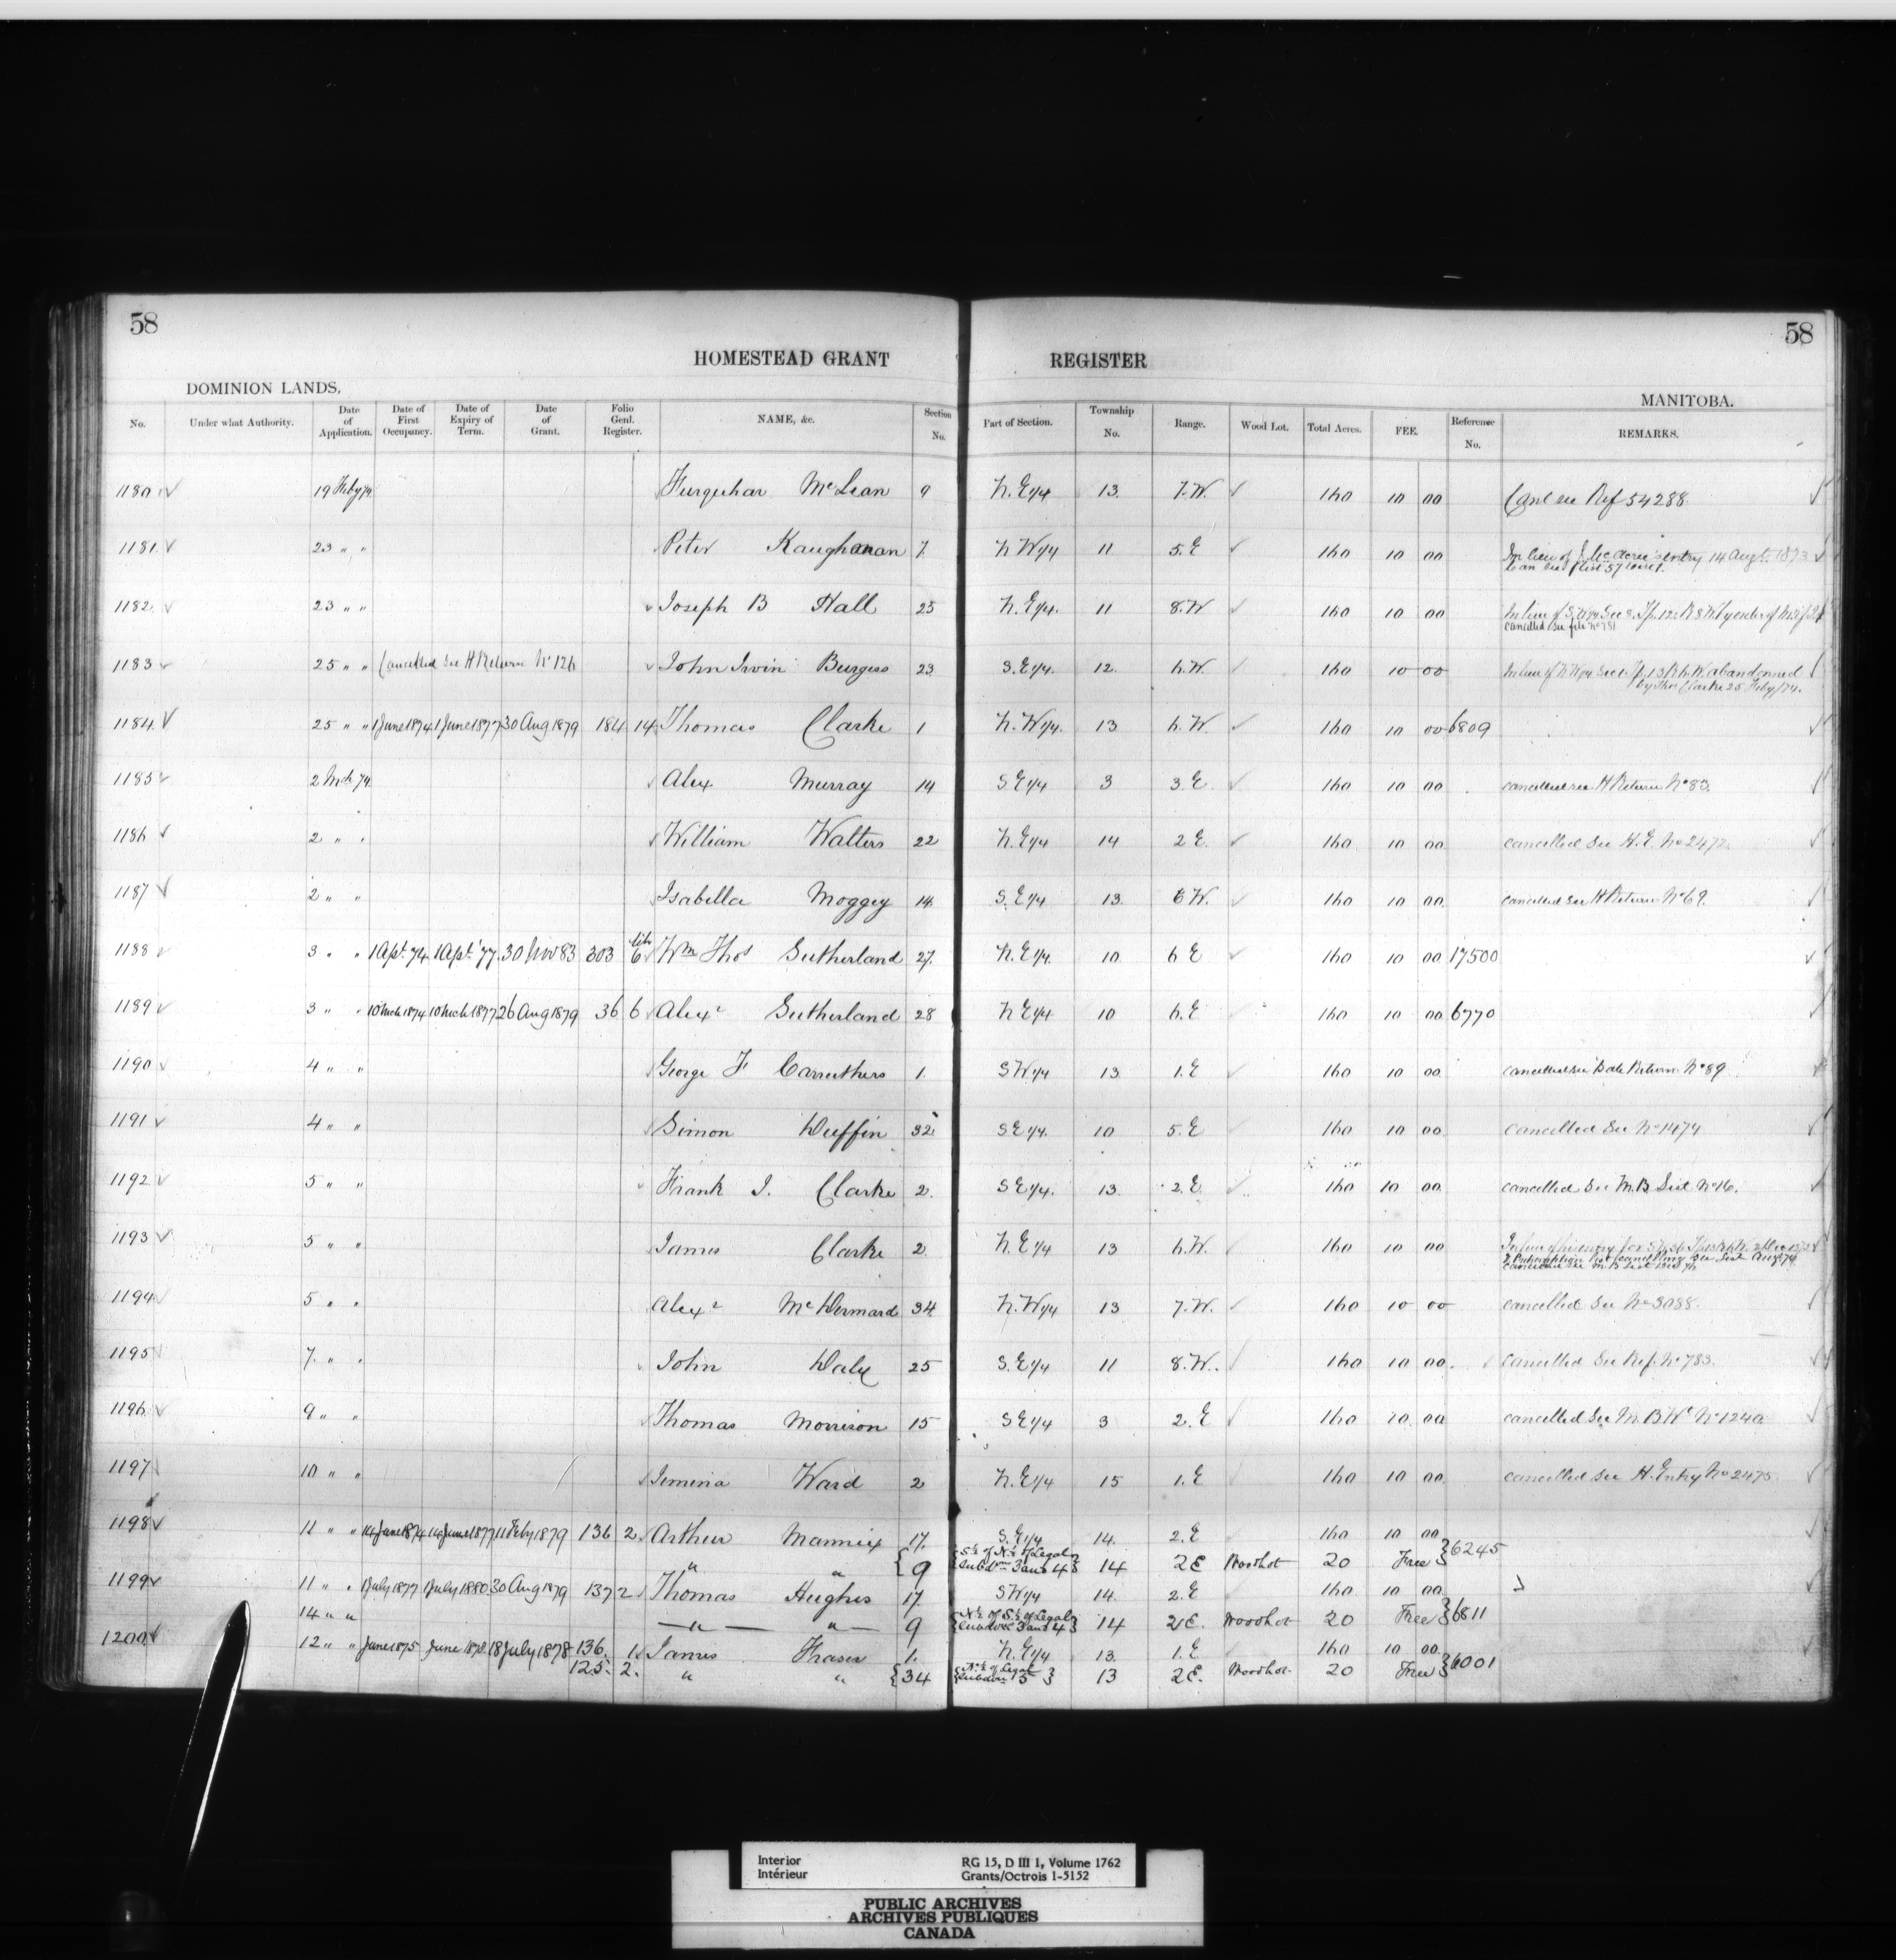 58 58
HOMESTEAD GRANT REGISTER
DOMINION LANDS. MANITOBA.
No. Under what Authority. Date of Application. Date of First Occupancy. Date of Expiry of Term. Date of Grant. Folio Genl. Register. NAME, &c. Section No. Part of Section. Township No. Range. Wood Lot. Total Acres. FEE. Reference No. REMARKS.
1180 19 Feby 74 Furquhar McLean 9 N.E 1/4 13 7.W. 160 10 00 Canl see Ref 54288
1181 23 " " Peter 7 N W 1/4 11 5.E 160 10 00 In lieu of entry 14 Augt. 1873
1182 23 " " Joseph B Hall 25 N.E 1/4 11 8.W 160 10 00 In lieu of
cancelled See file No 781
1183 25 " " Cancelled See H Return No 126 John Irvin Burgess 23 S.E 1/4 12 6.W. 160 10 00 In lieu of N W 1/4 Sec 1 Tp. 13 R 6.W. abandonned
by Thos Clarke 25 Feby/74.
1184 25 " " 1 June 1874 1 June 1877 30 Aug 1879 184 14 Thomas Clarke 1 N.W 1/4 13 6.W. 160 10 00 6809
1185 2 Mch 74 Alex Murray 14 S E 1/4 3 3.E 160 10 00 cancelled see H Return No 83.
1186 2 " " William Walters 22 N.E 1/4 14 2 E. 160 10 00 cancelled See H.E. No 2472
1187 2 " " Isabella Moggey 14 S.E 1/4 13 6 W. 160 10 00 cancelled See H Return No 69.
1188 3 " " 1 Apl. 74 1 Apl. 77 30 Nov 83 303 lib 6 Wm Thos Sutherland 27 N.E 1/4 10 6 E 160 10 00 17500
1189 3 " " 10 Mch 1874 10 Mch 1877 26 Aug 1879 36 6 Alexr Sutherland 28 N E 1/4 10 6.E 160 10 00 6770
1190 4 " " George F Carruthers 1 S W 1/4 13 1.E 160 10 00 cancelled see Sale Return No 89
1191 4 " " Simon Duffin 32 S E 1/4 10 5.E 160 10 00 cancelled See No 1474
1192 5 " " Frank J. Clarke 2 S E 1/4 13 2.E 160 10 00 cancelled See M.B. List No 16.
1193 5 " " James Clarke 2 N.E 1/4 13 6.W. 160 10 00
1194 5 " " Alexr McDermard 34 N.W 1/4 13 7.W. 160 10 00 cancelled See No 3088.
1195 7 " " John Daly 25 S.E 1/4 11 8.W. 160 10 00 cancelled See Ref. No 783.
1196 9 " " Thomas Morrison 15 S E 1/4 3 2.E 160 10 00 cancelled See No 1240
1197 10 " " Jemima Ward 2 N.E 1/4 15 1.E 160 10 00 cancelled see H. Entry No 2475
1198 11 " " 14 June 1874 14 June 1877 11 Feby 1879 136 2 Arthur Mannix 17 S.E 1/4 14 2.E 160 10 00 6245
" " 9 S 1/2 of N 1/2 of Legal Subdns 3 and 4 14 2 E Woodlot 20 Free
1199 11 " " 1 July 1877 1 July 1880 30 Aug 1879 137 2 Thomas Hughes 17 S W 1/4 14 2.E 160 10 00 6811
14 " " " " 9 N 1/2 of S 1/2 of Legal Subdns 3 and 4 14 2 E. Woodlot 20 Free
1200 12 " " June 1875 June 1878 18 July 1878 136 1 James Fraser 1 N.E 1/4 13 1.E 160 10 00 6001
125 2 " " 34 N 1/2 of Legal Subdn 5 13 2 E. Woodlot 20 Free
Interior
Intérieur
RG 15, D III 1, Volume 1762
Grants/Octrois 1-5152
PUBLIC ARCHIVES
ARCHIVES PUBLIQUES
CANADA